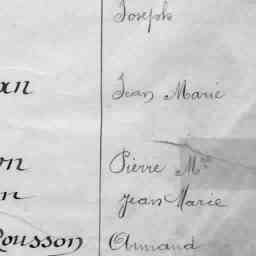 Joseph
an Jean Marie
on Pierre Mie
n Jean Marie
Rousson Armand